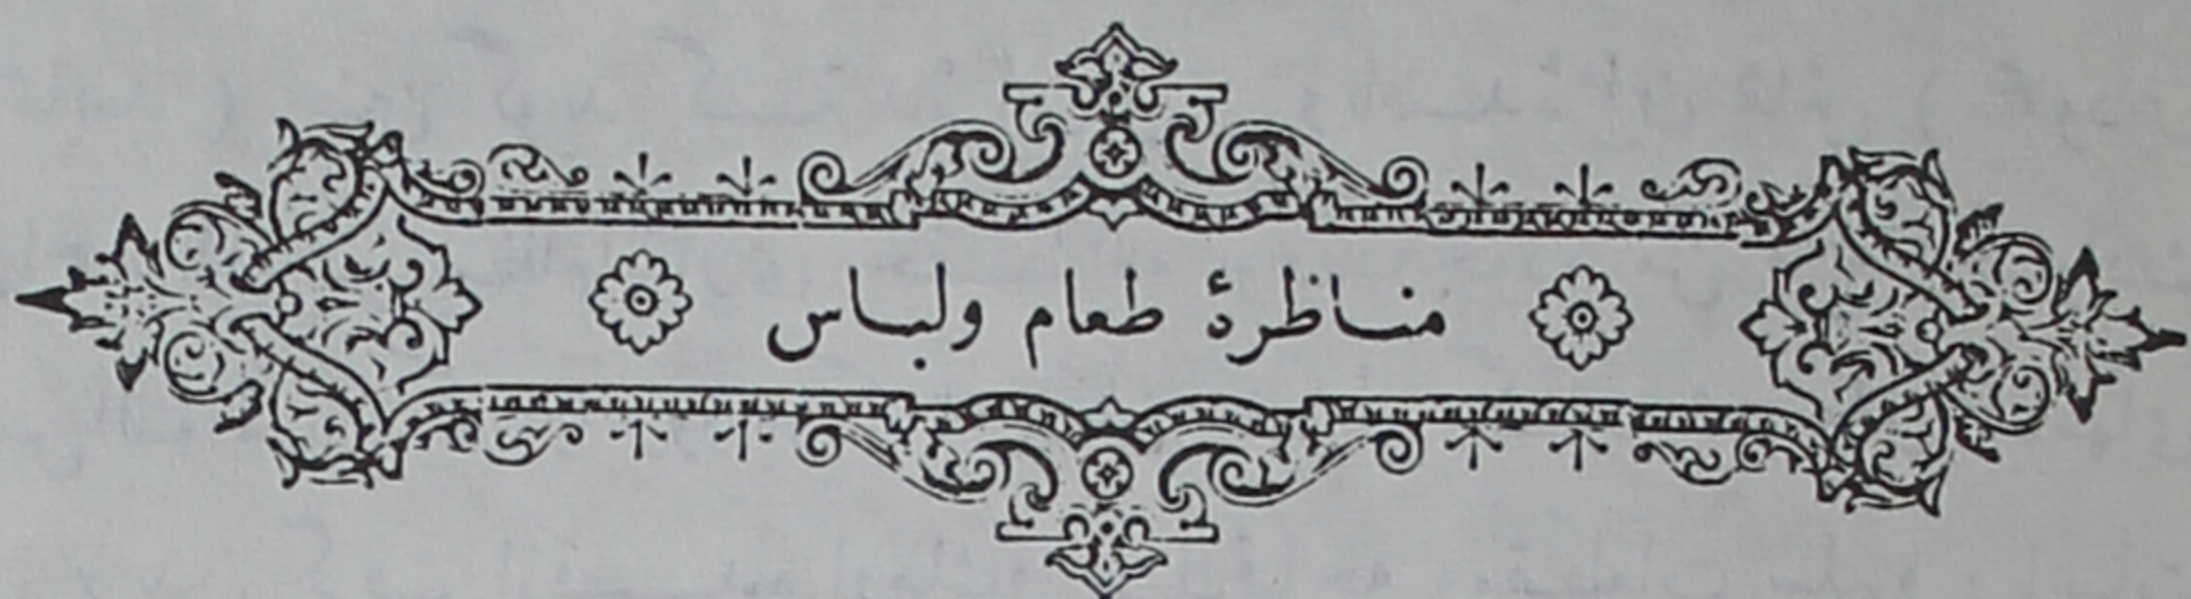 مناظرۀ طعام ولباس